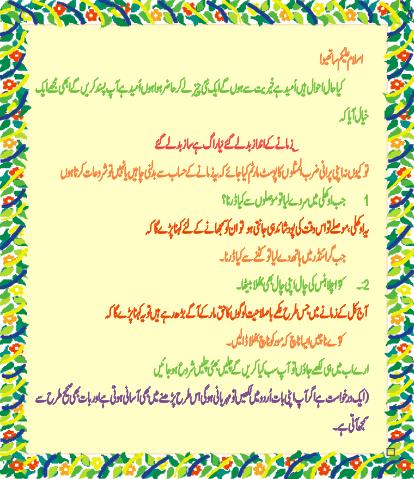 اسلام علیکم ساتھیو!
کیا حال احوال ہیں اُمید ہے خیریت سے ہوں گے ایک نئی چیز لے کر حاضر ہوا ہوں اُمید ہے آپ پسند کریں گے ابھی مجھے ایک
خیال آیا کہ
زمانے کے انداز بدلے گئے نیا راگ ہے ساز بدلے گئے
تو کیوں نہ اپنی پرانی ضرب المثلوں کا پوسٹ مارٹم کیا جائے کہ یہ زمانے کے حساب سے بدلنی چاہیں یا نہیں تو شروعات کرتا ہوں
1 جب اوکھلی میں سر دے لیا تو موصلوں سے کیا ڈرنا؟
یہ اوکھلی، موصلے تو اس وقت کی پود شاید ہی جانتی ہو تو ان کو سمجھانے کے لئے کہنا پڑے گا کہ
جب گرائنڈر میں ہاتھ دے لیا تو کٹنے سے کیا ڈرنا۔
2:۔ کوّا چلا ہنس کی چال اپنی چال بھی بھلا بیٹھا۔
آج کل کے زمانے میں جس طرح نکمے باصلاحیت لوگوں کا حق مار کے آگے بڑھ رہے ہیں تو یہ کہنا پڑے گا کہ
کوّے ناچیں ایسا ناچ کہ مور کو ناچ بھلا ڈالیں۔
ارے اب میں ہی لکھے جاؤں تو آپ سب کیا کریں گے چلیں بھئی چلیں شروع ہو جائیں
(ایک درخواست ہے اگر آپ اپنی بات اُردو میں لکھیں تو مہربانی ہوگی اس طرح پڑھنے میں بھی آسانی ہوتی ہے اور بات بھی صحیح طرح سے
سمجھ آتی ہے۔